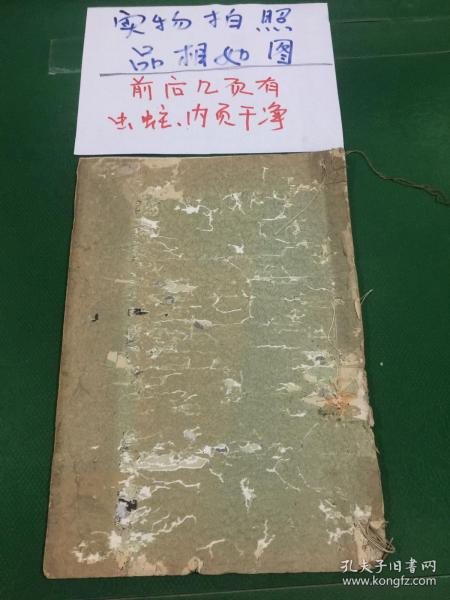 实物拍照
品相如图
前后几页有
虫蛀、内页干净
孔夫子旧书网
www.kongfz.com